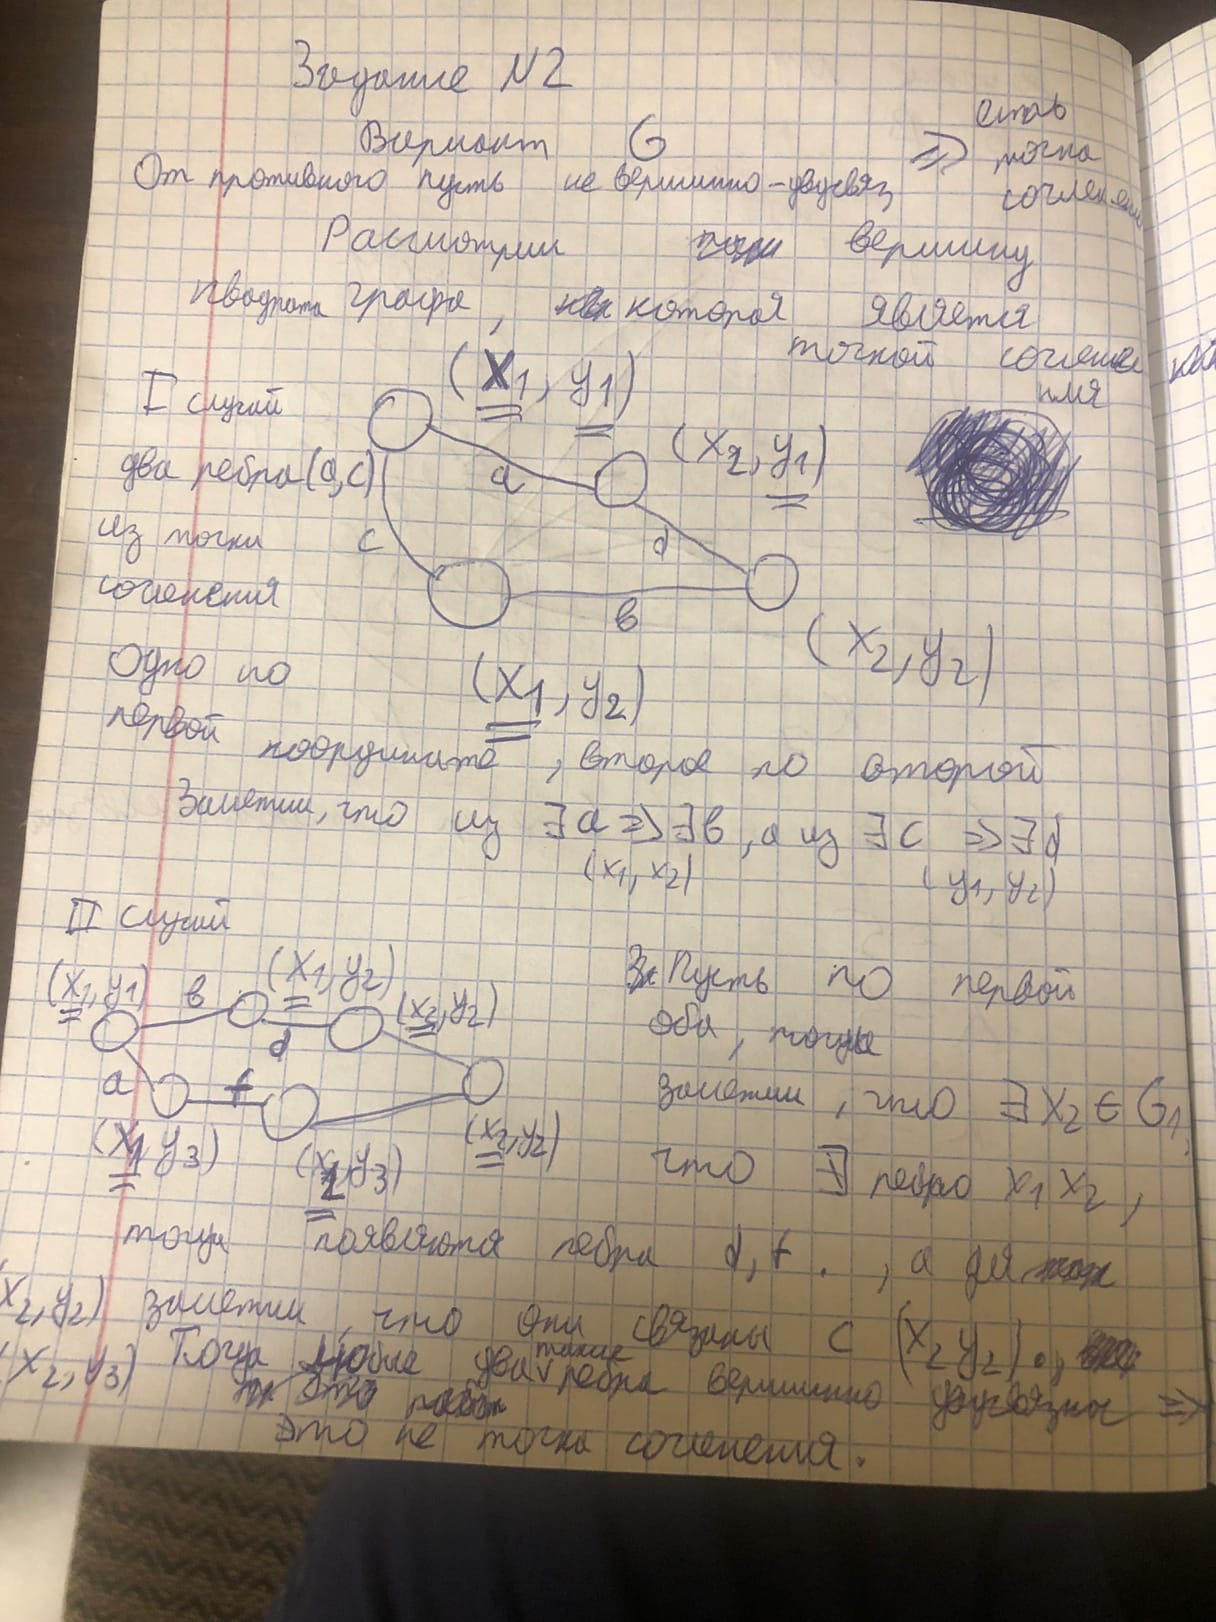 Задание N2
Вариант 6
От противного пусть не вершинно-двусвяз => есть точка сочленения
Рассмотрим вершину
квадрата графа, которая является
точкой сочлене
ния
I случай
два ребра (a, c)
из точки
сочленения
(x1, y1)
(x2, y1)
a
c
d
b
(x2, y2)
(x1, y2)
Одно по
первой координате, второе по второй
Заметим, что из ∃ a => ∃ b, а из ∃ c => ∃ d
(x1, x2) (y1, y2)
II случай
(x1, y1) b (x1, y2) (x2, y2)
d
a f
(x1 y3) (x2 y3) (x2, y2)
Пусть по первой
оба, тогда
заметим, что ∃ x2 ∈ G1,
что ∃ ребро x1 x2,
тогда появляются ребра d, f. , а для
(x2, y2) заметим, что они связаны с (x2 y2).,
(x2, y3) Тогда любые два такие ребра вершинно двусвязны =>
Это не точка сочленения.